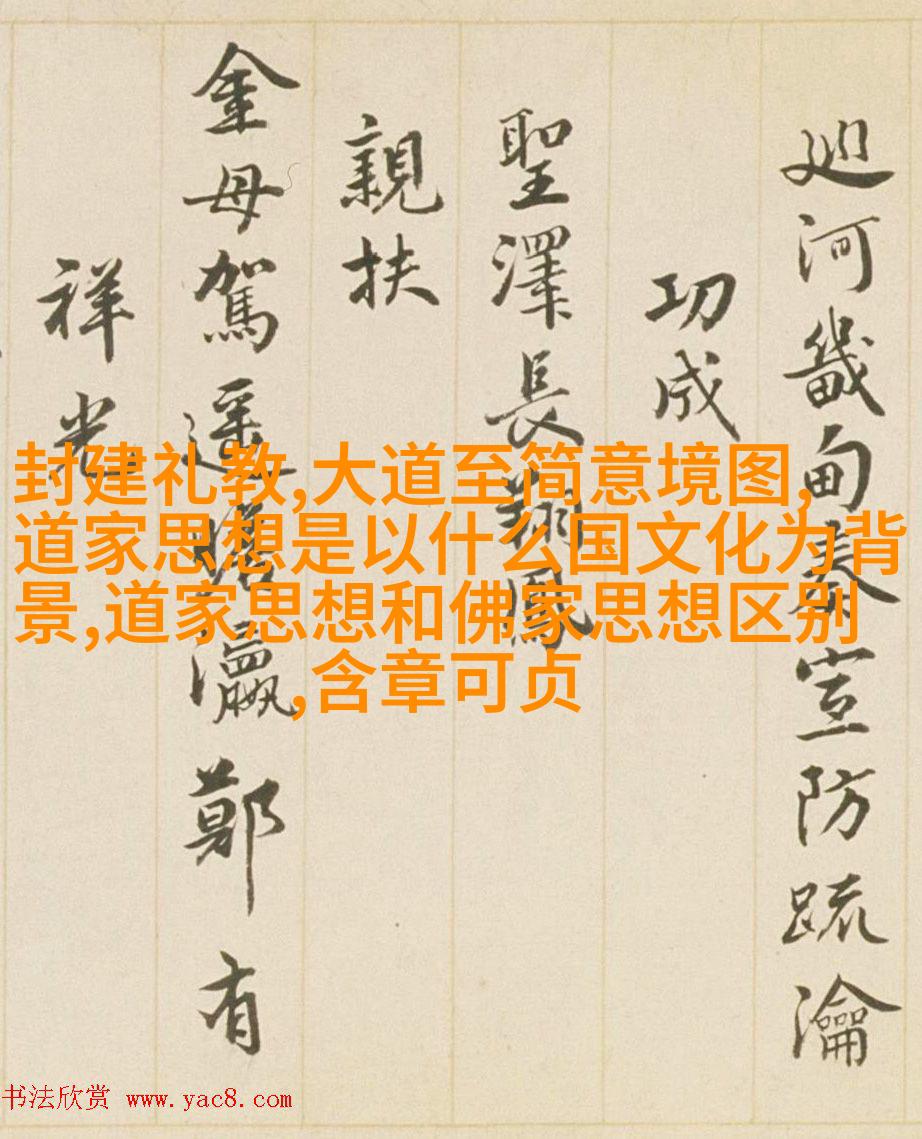 廵河畿甸奏宣防疏瀹
功成
聖澤長翔鳳
親扶
金母駕遥瀛鄭有
祥光
封建礼教,大道至简意境图,
道家思想是以什么国文化为背
景,道家思想和佛家思想区别
,含章可贞
书法欣赏 www.yac8.com